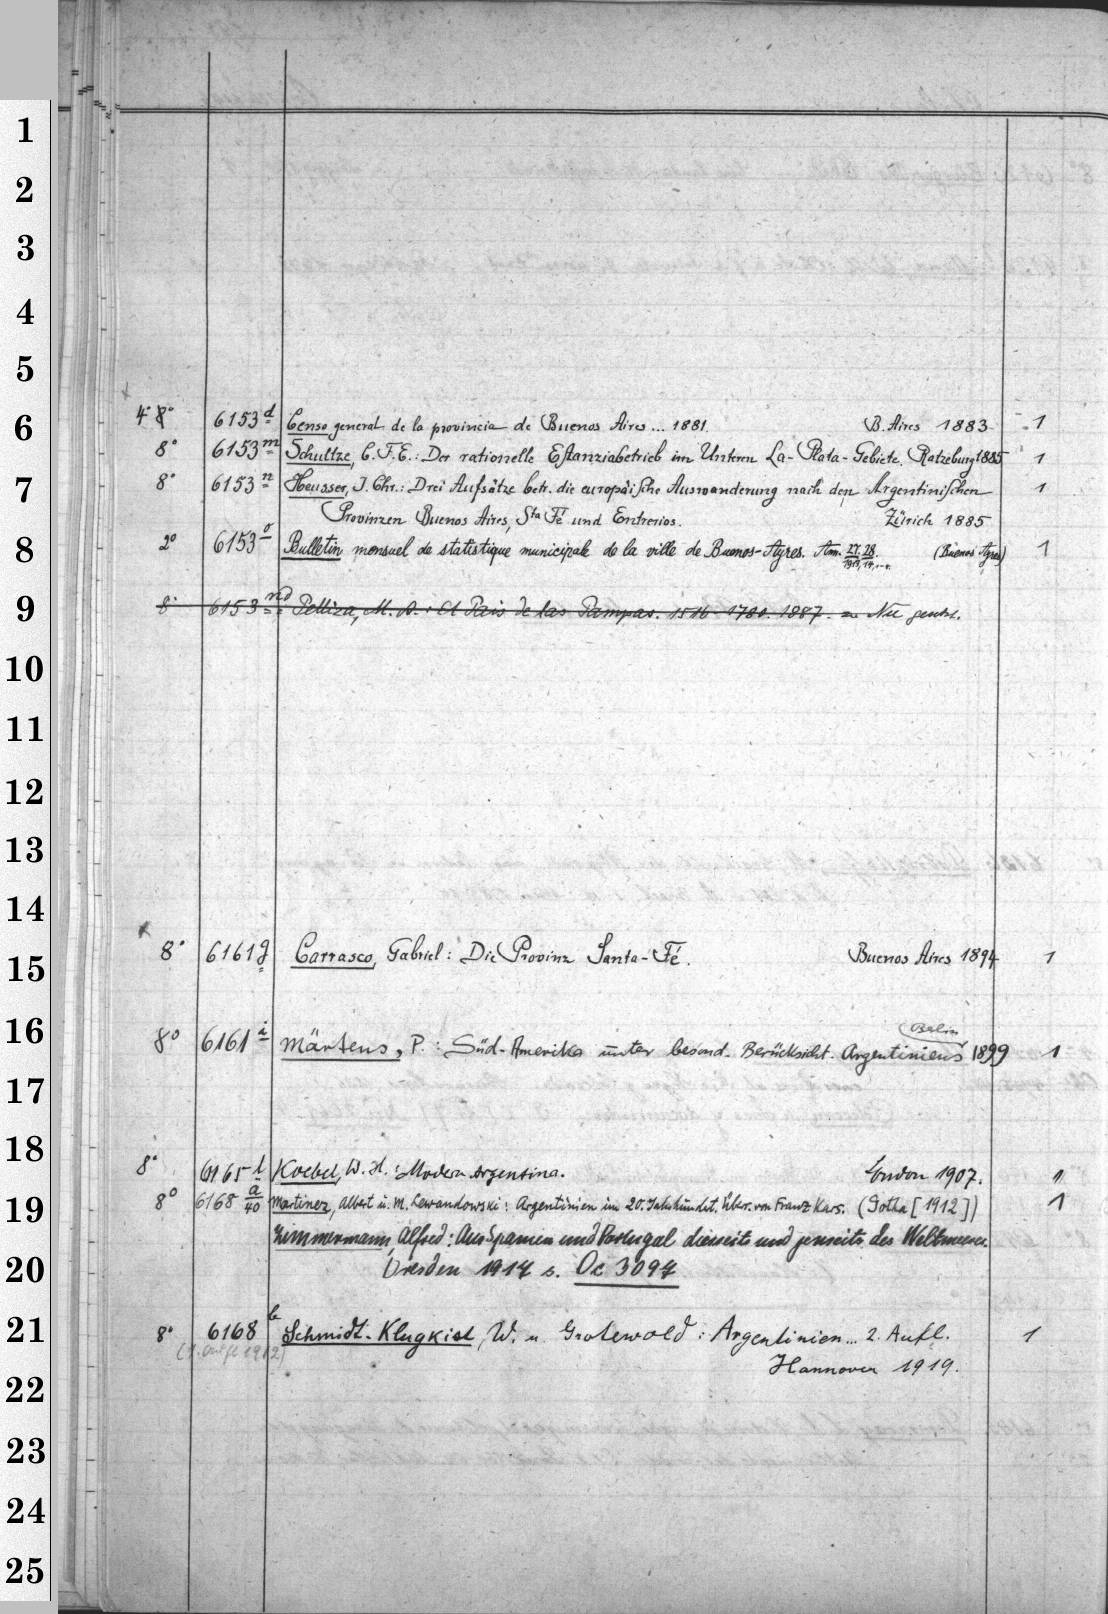 1
2
3
4
5
6
7
8
9
10
11
12
13
14
15
16
17
18
19
20
21
22
23
24
25
4° 8° 6153 d Censo general de la provincia de Buenos Aires ... 1881. B. Aires 1883 1
8° 6153 m Schultze, C. F. E.: Der rationelle Estanziabetrieb im Unteren La-Plata-Gebiete. Ratzeburg 1885 1
8° 6153 n Heusser, J. Chr.: Drei Aufsätze betr. die europäische Auswanderung nach den Argentinischen 1
Provinzen Buenos Aires, Sta Fé und Entrerios. Zürich 1885
2° 6153 o Bulletin mensuel de statistique municipale de la ville de Buenos-Ayres. Ann. 27. 28. 1913, 14, (Buenos Ayres) 1
8° 6153 Pelliza, M. A.: El Pais de las Pampas. 1516-1780. 1887.
8° 6161 g Carrasco, Gabriel: Die Provinz Santa-Fé. Buenos Aires 1894 1
Berlin
8° 6161 i Märtens, P.: Süd-Amerika unter besond. Berücksicht. Argentiniens 1899 1
8° 6165 l Koebel, W. H.: Modern Argentina. London 1907. 1
8° 6168 a/40 Martinez, Albert u. M. Lewandowski: Argentinien im 20. Jahrhundert. Übers. von Franz Kars. (Gotha [1912]) 1
Zimmermann, Alfred: Aus Spanien und Portugal diesseits und jenseits des Weltmeeres.
Dresden 1917 s. Oc 3094
8° 6168 b Schmidt-Klugkist, W. u. Grotewold: Argentinien... 2. Aufl. 1
(1. Aufl. 1912)
Hannover 1919.